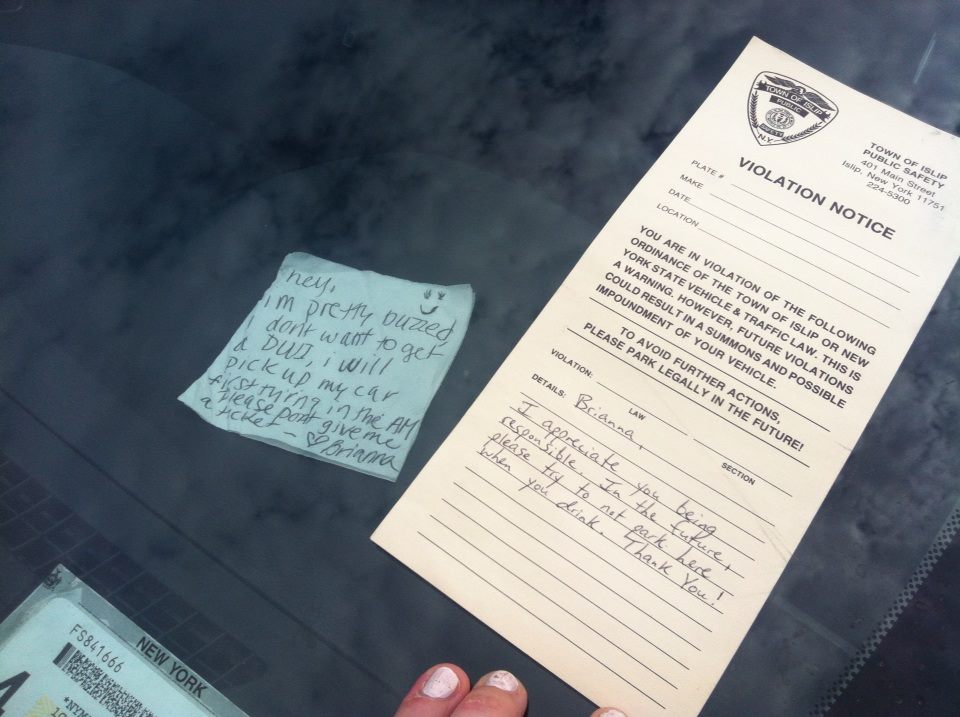 hey,
i m pretty buzzed
I dont want to get
a DUI, i will
pick up my car
first thing in the AM
Please dont give me
a ticket - ♡ Brianna
TOWN OF ISLIP
PUBLIC
SAFETY
N.Y.
TOWN OF ISLIP
PUBLIC SAFETY
401 Main Street
Islip, New York 11751
224-5300
VIOLATION NOTICE
PLATE #
MAKE
DATE
LOCATION
YOU ARE IN VIOLATION OF THE FOLLOWING
ORDINANCE OF THE TOWN OF ISLIP OR NEW
YORK STATE VEHICLE & TRAFFIC LAW. THIS IS
A WARNING. HOWEVER, FUTURE VIOLATIONS
COULD RESULT IN A SUMMONS AND POSSIBLE
IMPOUNDMENT OF YOUR VEHICLE.
TO AVOID FURTHER ACTIONS,
PLEASE PARK LEGALLY IN THE FUTURE!
VIOLATION:
LAW
SECTION
DETAILS: Brianna,
I appreciate you being
responsible. In the future,
please try to not park here
when you drink. Thank You!
NEW YORK
FS841666